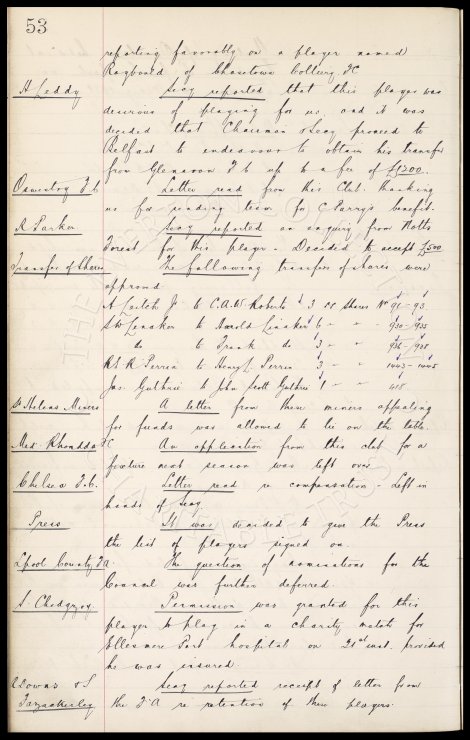 53
reporting favorably on a player named
Raybould of Chasetown Colliery F.C
H Leddy Secy reported that this player was
desirous of playing for us, and it was
decided that Chairman & Secy proceed to
Belfast to endeavour to obtain his transfer
from Glenavon F.C up to a fee of £1200.
Oswestry F.C. Letter read from this Club thanking
us for sending team for C Parry's benefit.
R Parker Secy reported an enquiry from Notts
Forest for this player. Decided to accept £500
Transfer of Shares The following transfers of shares were
approved
A Leitch Jr to C.A.W. Roberts 3 Shares No 91 - 93
S W Linaker to Harold Linaker 6 " " 930 - 935
do to Frank do 3 " " 936 - 938
R H R Perrin to Henry L. Perrin 3 " " 1443 - 1445
Jas Guthrie to John Scott Guthrie 1 " " 418
St Helens Miners A letter from these miners appealing
for funds was allowed to lie on the table.
Mid Rhondda F.C An application from this club for a
fixture next season was left over
Chelsea F.C. Letter read re compensation - Left in
hands of Secy.
Press It was decided to give the Press
the list of players signed on.
Lpool County F.A. The question of nominations for the
Council was further deferred.
S. Chedgzoy. Permission was granted for this
player to play in a charity match for
Ellesmere Port hospital on 21st inst. provided
he was insured.
Downs & Secy reported receipt of letter from
Fazackerley the F.A re retention of these players.